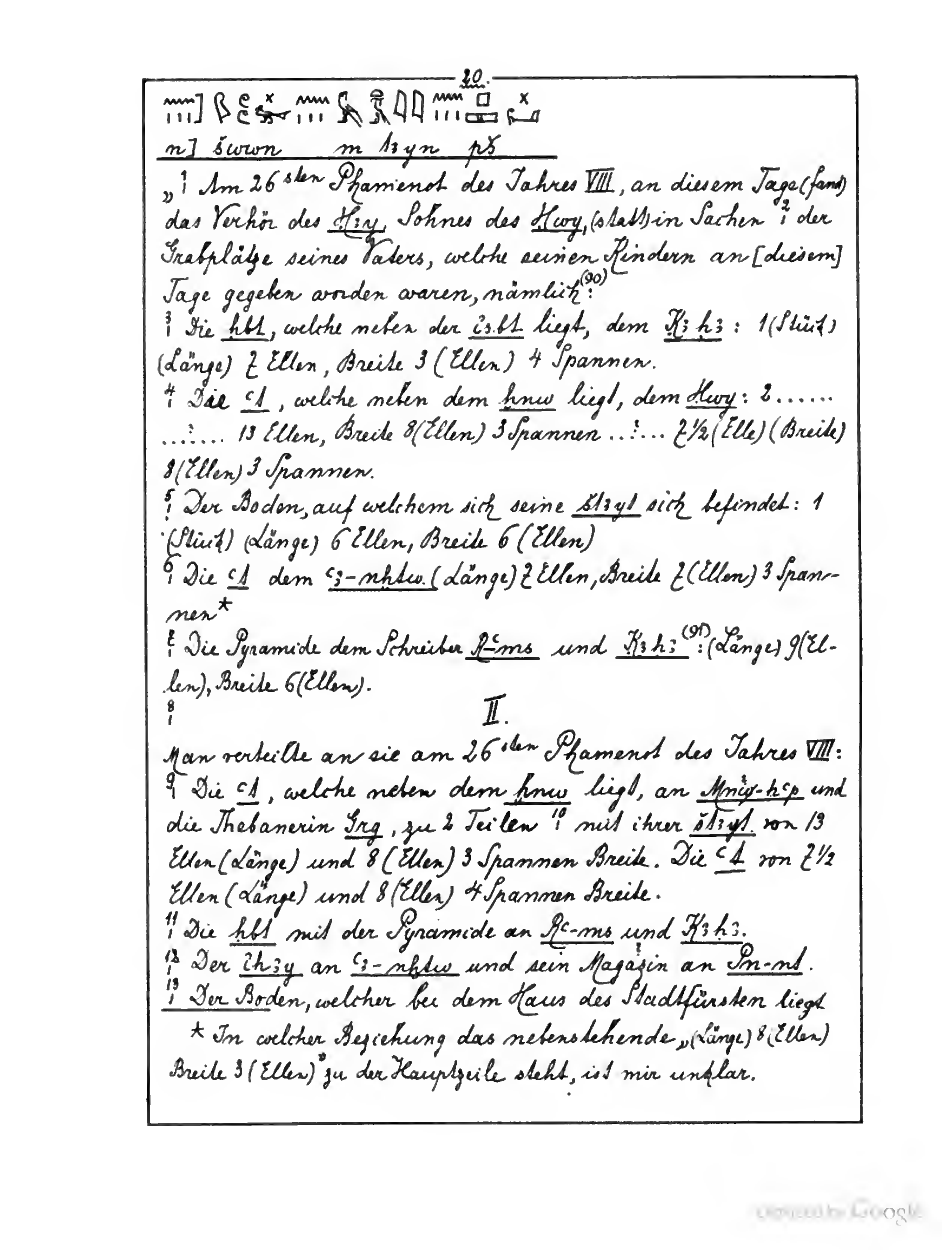 20.
n] šwwn m İ3yn pš
„¹ Am 26sten Phamenot des Jahres VIII, an diesem Tage (fand)
das Verhör des H3y, Sohnes des Hwy, (statt) in Sachen ² der
Grabplätze seines Vaters, welche seinen Kindern an [diesem]
Tage gegeben worden waren, nämlich(90):
³ Die hbt, welche neben der i3.bt liegt, dem K3h3 : 1 (Stück)
(Länge) 7 Ellen, Breite 3 (Ellen) 4 Spannen.
⁴ Die ct, welche neben dem hnw liegt, dem Hwy: 2 ......
...?... 13 Ellen, Breite 8 (Ellen) 3 Spannen ...?... 7½ (Elle) (Breite)
8 (Ellen) 3 Spannen.
⁵ Der Boden, auf welchem sich seine št3yt sich befindet: 1
(Stück) (Länge) 6 Ellen, Breite 6 (Ellen)
⁶ Die ct dem c3-nhtw. (Länge) 7 Ellen, Breite 7 (Ellen) 3 Span-
nen*
⁷ Die Pyramide dem Schreiber Rc-ms und K3h3(91): (Länge) 9 (El-
len), Breite 6 (Ellen).
⁸ II.
Man verteilte an sie am 26sten Phamenot des Jahres VIII:
⁹ Die ct, welche neben dem hnw liegt, an und
die Thebanerin Grg, zu 2 Teilen ¹⁰ mit ihrer št3yt von 13
Ellen (Länge) und 8 (Ellen) 3 Spannen Breite. Die ct von 7½
Ellen (Länge) und 8 (Ellen) 4 Spannen Breite.
¹¹ Die hbt mit der Pyramide an Rc-ms und K3h3.
¹² Der ih3y an c3-nhtw und sein Magazin an Pn-nt.
¹³ Der Boden, welcher bei dem Haus des Stadtfürsten liegt
* In welcher Beziehung das nebenstehende „(Länge) 8 (Ellen)
Breite 3 (Ellen)" zu der Hauptzeile steht, ist mir unklar.
Digitized by Google